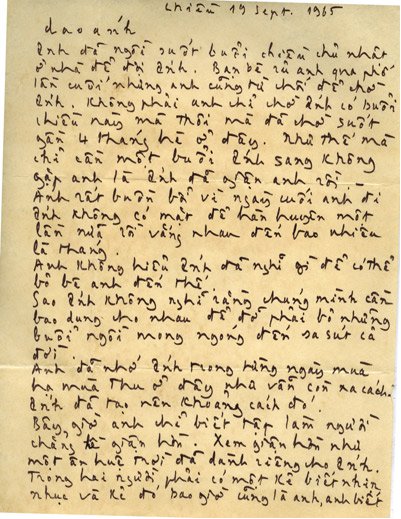 chiều 19 Sept. 1965
dao ánh
Anh đã ngồi suốt buổi chiều chủ nhật
ở nhà để đợi Ánh. Bạn bè rủ anh qua phố
lần cuối nhưng anh cũng từ chối để chờ
Ánh. Không phải anh chỉ chờ Ánh có buổi
chiều này mà thôi mà đã chờ suốt
gần 4 tháng hè ở đây. Như thế mà
chỉ cần một buổi Ánh sang không
gặp anh là Ánh đã giận anh rồi.
Anh rất buồn bã vì ngày cuối anh đi
Ánh không có mặt để hàn huyên một
lần nữa rồi vắng nhau đến bao nhiêu
là tháng.
Anh không hiểu Ánh đã nghĩ gì để có thể
bỏ bê anh đến thế.
Sao Ánh không nghĩ rằng chúng mình cần
bao dung cho nhau để đỡ phải bỏ những
buổi ngồi mong ngóng đến sa sút cả
đời
Anh đã nhớ Ánh trong từng ngày mùa
hạ mùa thu ở đây như vẫn còn xa cách.
Ánh đã tạo nên khoảng cách đó.
Bây giờ anh chỉ biết tập làm người
chẳng giận hờn. Xem giận hờn như
một ân huệ trời đã dành riêng cho Ánh.
Trong hai người, phải có một kẻ biết nhịn
nhục và kẻ đó bao giờ cũng là anh, anh biết